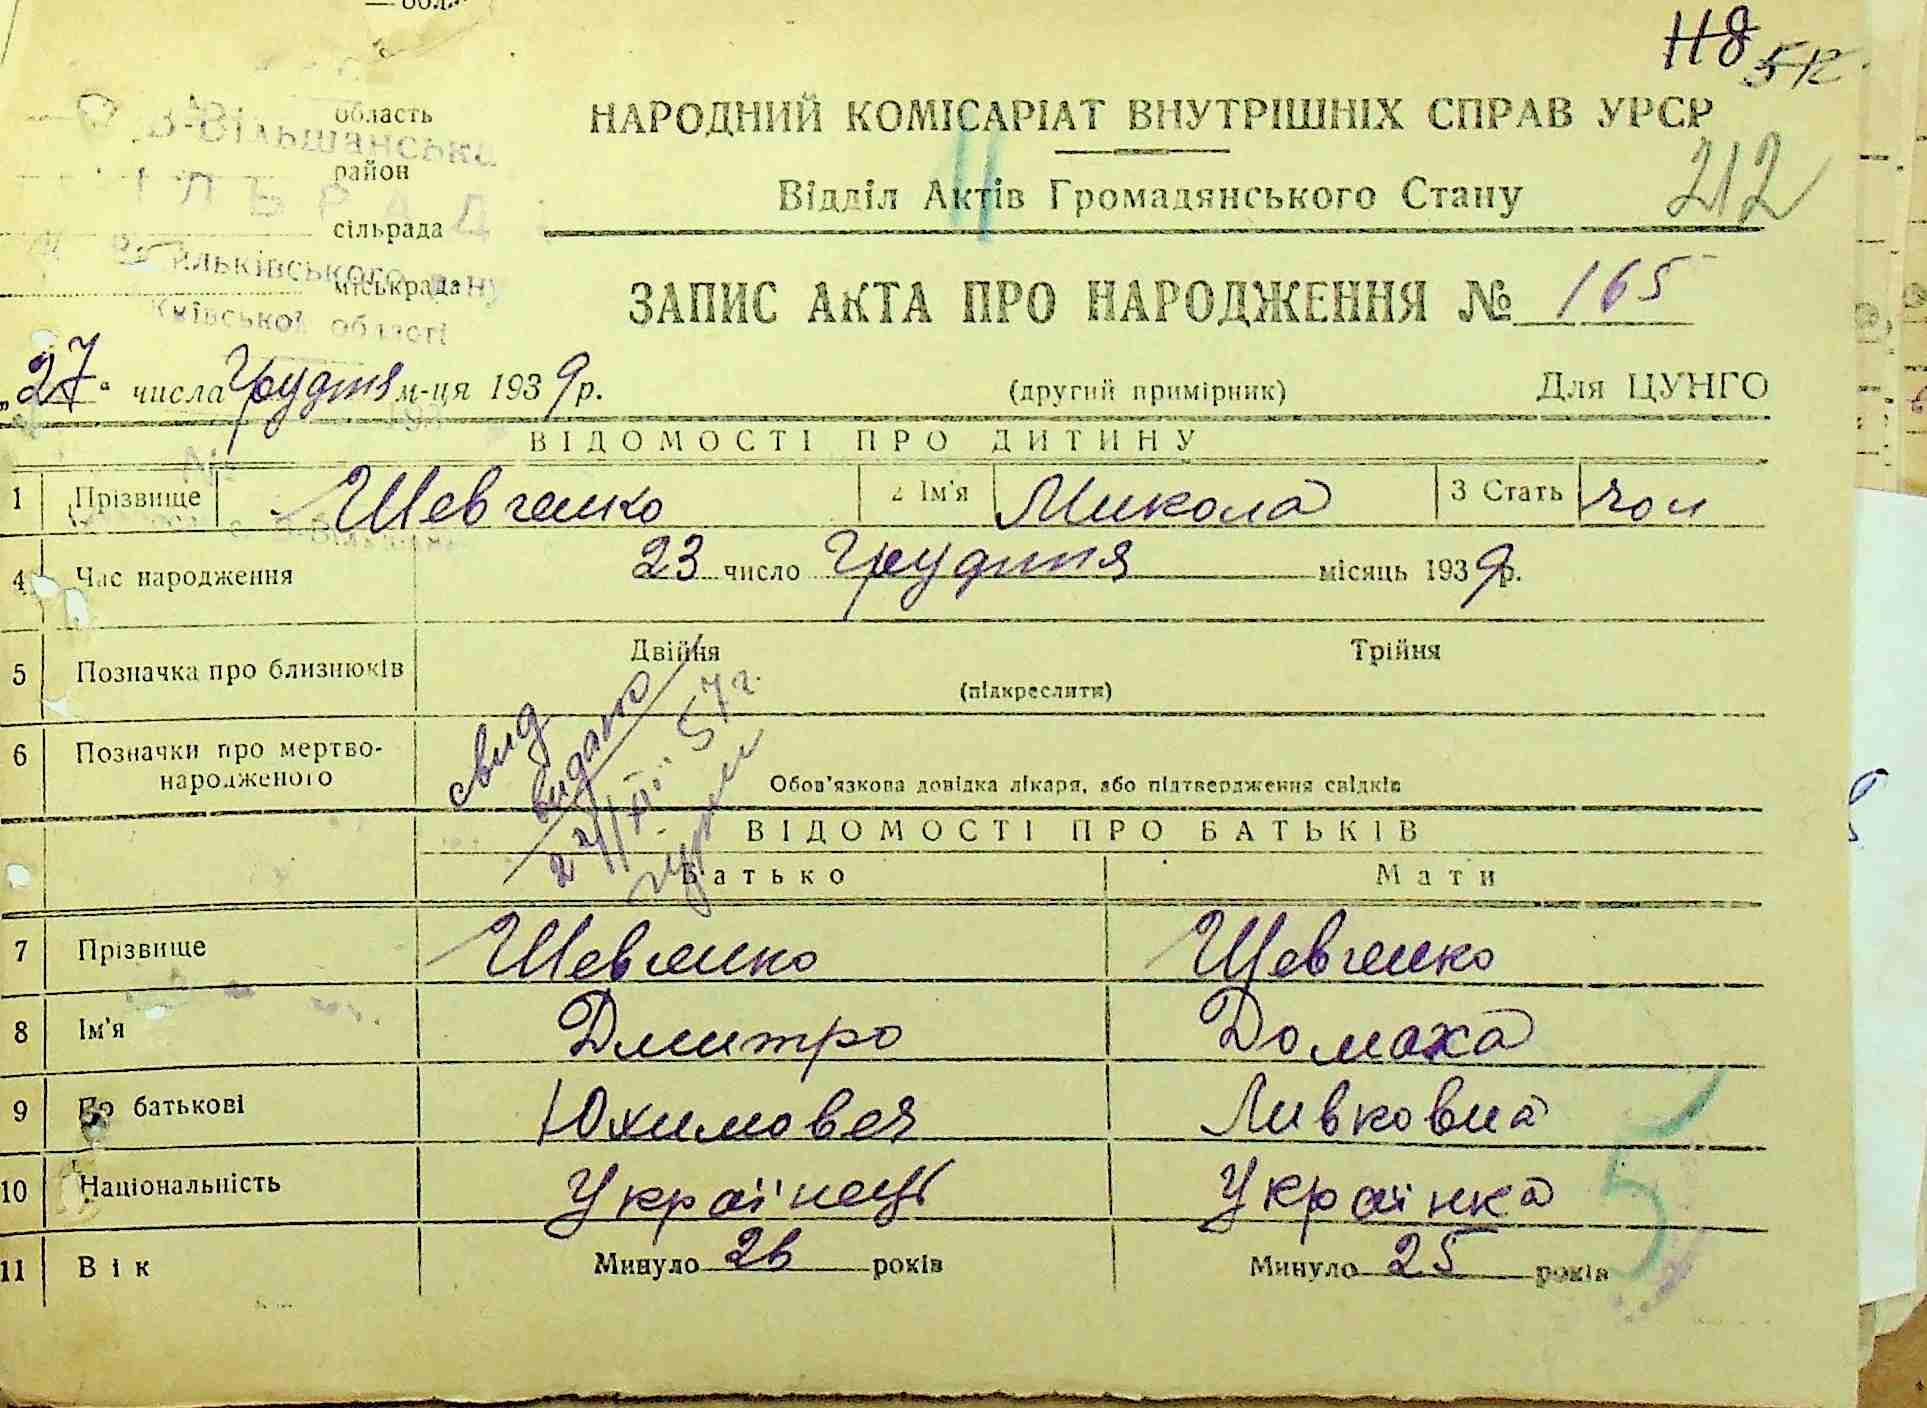 118 5к.
область
В-Вільшанська
район
сільрада
міськрада
Київської області
НАРОДНИЙ КОМІСАРІАТ ВНУТРІШНІХ СПРАВ УРСР
Відділ Актів Громадянського Стану
212
ЗАПИС АКТА ПРО НАРОДЖЕННЯ № 165
„27“ числа Грудня м-ця 1939 р.
(другий примірник) Для ЦУНГО
ВІДОМОСТІ ПРО ДИТИНУ
1 Прізвище Шевченко 2 Ім'я Микола 3 Стать чол
4 Час народження 23 число Грудня місяць 1939 р.
5 Позначка про близнюків Двійня Трійня
(підкреслити)
6 Позначки про мертво-
народженого
Обов'язкова довідка лікаря, або підтвердження свідків
свид
видано
22/XII 57 г.
ВІДОМОСТІ ПРО БАТЬКІВ
Батько Мати
7 Прізвище Шевченко Шевченко
8 Ім'я Дмитро Домаха
9 По батькові Юхимовеч Ливковна
10 Національність Українець Українка
11 Вік Минуло 26 років Минуло 25 років
5